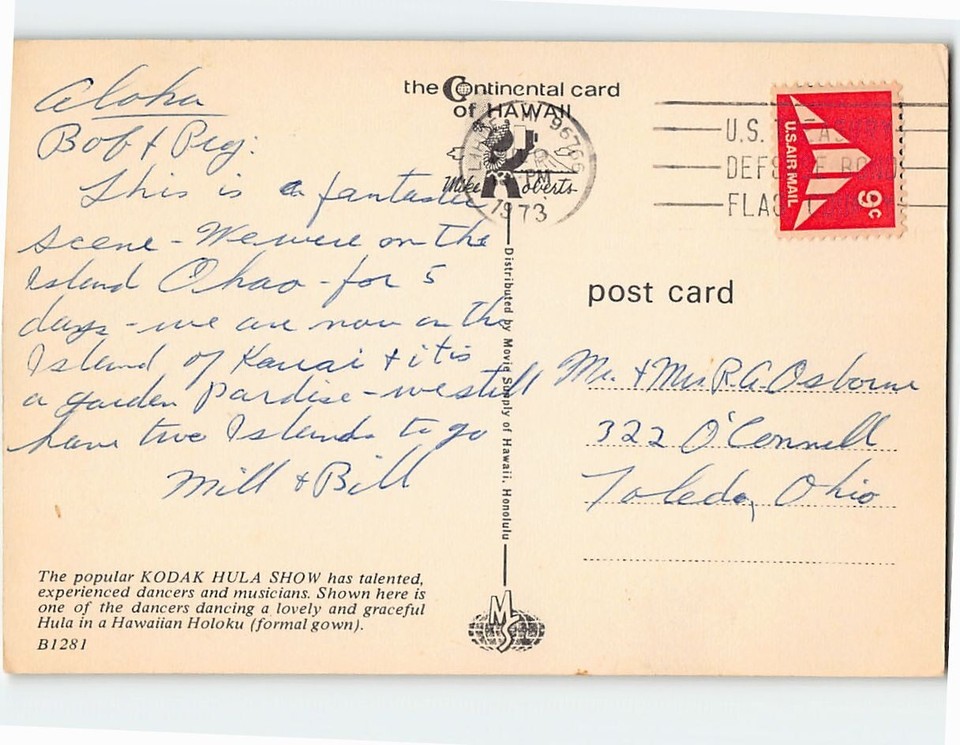 Aloha
Bob & Peg:
This is a fantastic
scene - We were on the
Island Ohao - for 5
days - we are now on the
Island of Kauai & it is
a garden Pardise - we still
have two Islands to go
Mill & Bill
The popular KODAK HULA SHOW has talented,
experienced dancers and musicians. Shown here is
one of the dancers dancing a lovely and graceful
Hula in a Hawaiian Holoku (formal gown).
B1281
the Continental card
of HAWAII
Mike Roberts
PM
1973
Distributed by Movie Supply of Hawaii, Honolulu
MS
U.S.
BOND
U.S. AIR MAIL
9c
post card
Mr. & Mrs R.A. Osborne
322 O'Connell
Toledo, Ohio